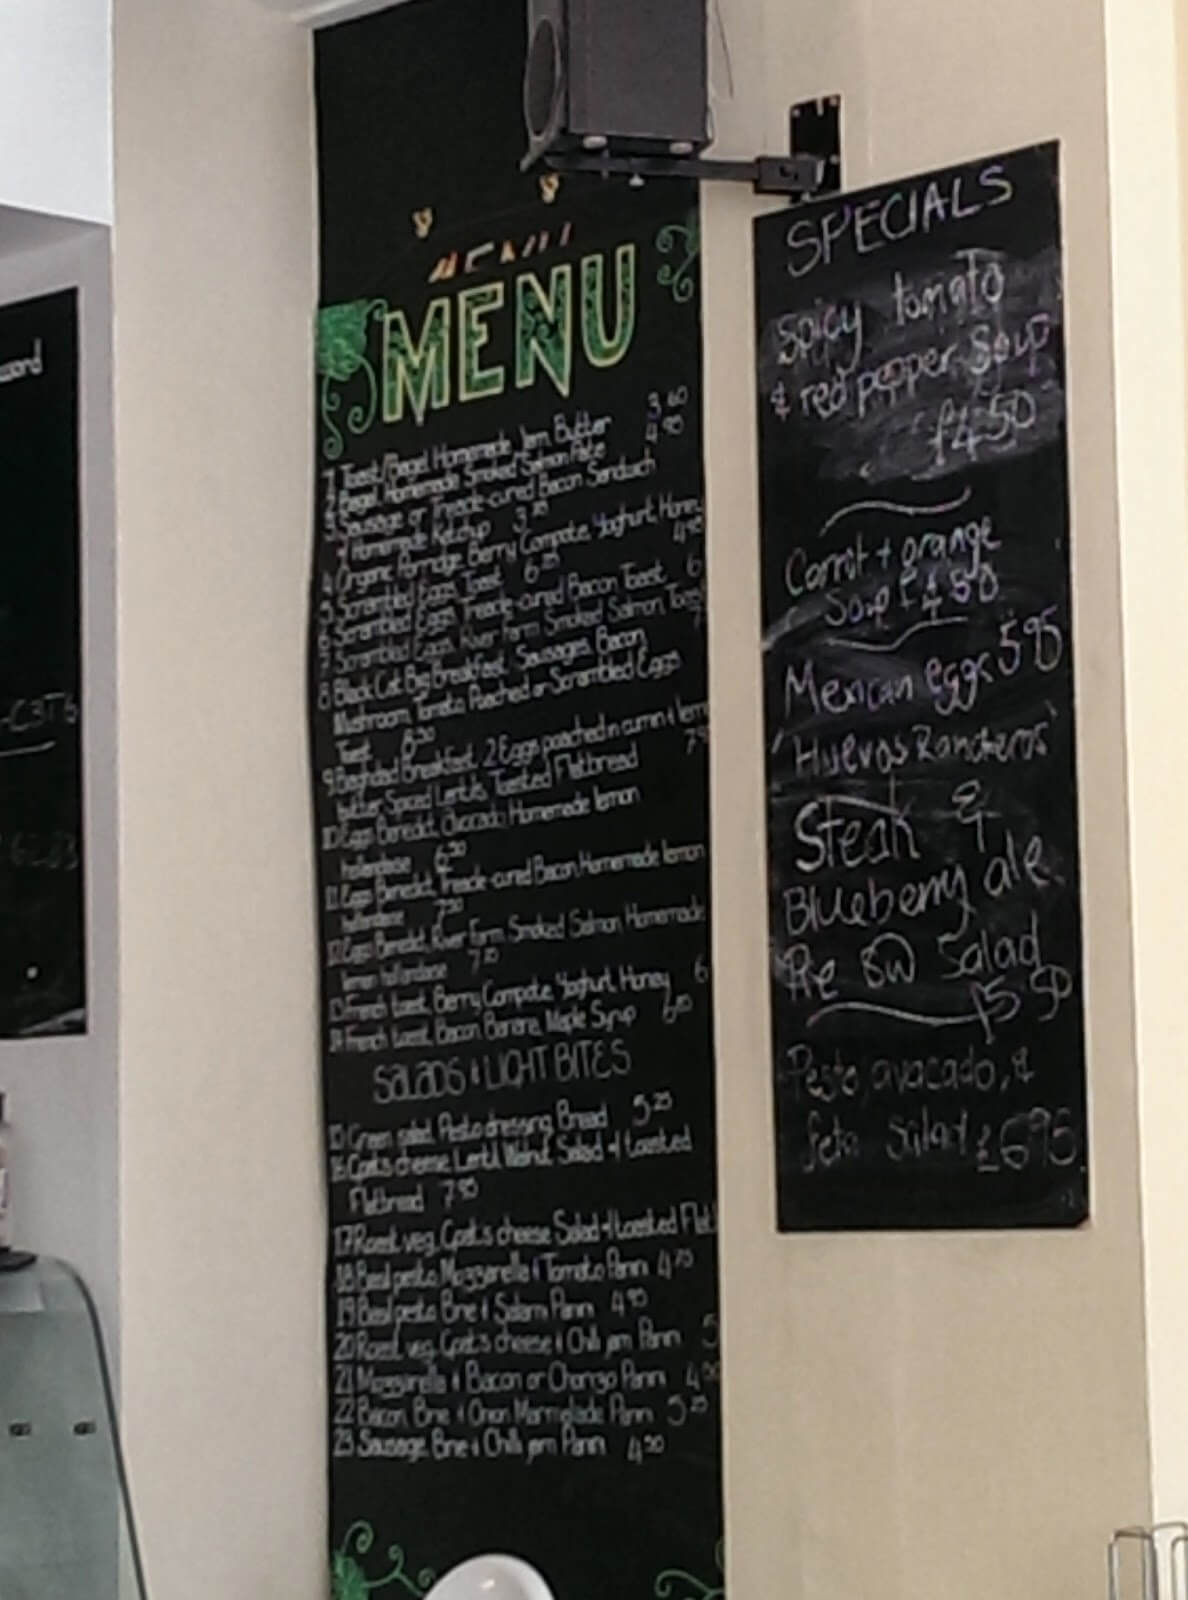 word
MENU
1 Toast/Bagel Homemade Jam, Butter 3.60
2 Bagel, Homemade Smoked Salmon Pate 4.90
3 Sausage or Treacle-cured Bacon Sandwich
Homemade Ketchup
4 Organic Porridge, Berry Compote, Yoghurt, Honey
5 Scrambled Eggs, Toast
6 Scrambled Eggs, Treacle-cured Bacon Toast 6
7 Scrambled Eggs, River Farm Smoked Salmon, Toast
8 Black Cat Big Breakfast, Sausages, Bacon
Mushroom, Tomato, Poached or Scrambled Eggs
Toast
9 Baghdad Breakfast, 2 Eggs poached in cumin & lemon
butter Spiced Lentils, Toasted Flatbread
10 Eggs Benedict, Avocado Homemade lemon
hollandaise
11 Eggs Benedict, Treacle-cured Bacon Homemade lemon
hollandaise
12 Eggs Benedict, River Farm Smoked Salmon Homemade
lemon hollandaise
13 French toast, Berry Compote, Yoghurt, Honey 6
14 French toast, Bacon Banana, Maple Syrup
SALADS & LIGHT BITES
15 Green salad, Pesto dressing, Bread 5.25
16 Goat's cheese Lentil Walnut Salad & toasted
Flatbread 7.95
17 Roast veg, Goat's cheese Salad & toasted Flat
18 Basil pesto, Mozzarella & Tomato Panini 4.75
19 Basil pesto Brie & Salami Panini 4.95
20 Roast veg, Goat's cheese & Chilli jam Panini 5
21 Mozzarella & Bacon or Chorizo Panini
22 Bacon, Brie & Onion Marmalade Panini 5.25
23 Sausage, Brie & Chilli jam Panini 4.50
SPECIALS
Spicy tomato
& red pepper Soup
£4.50
Carrot + orange
Soup £4.50
Mexican eggs 5.95
'Huevos Rancheros'
Steak &
Blueberry ale
Pie BW Salad
£5.50
Pesto, avacado, &
feta salad £6.95